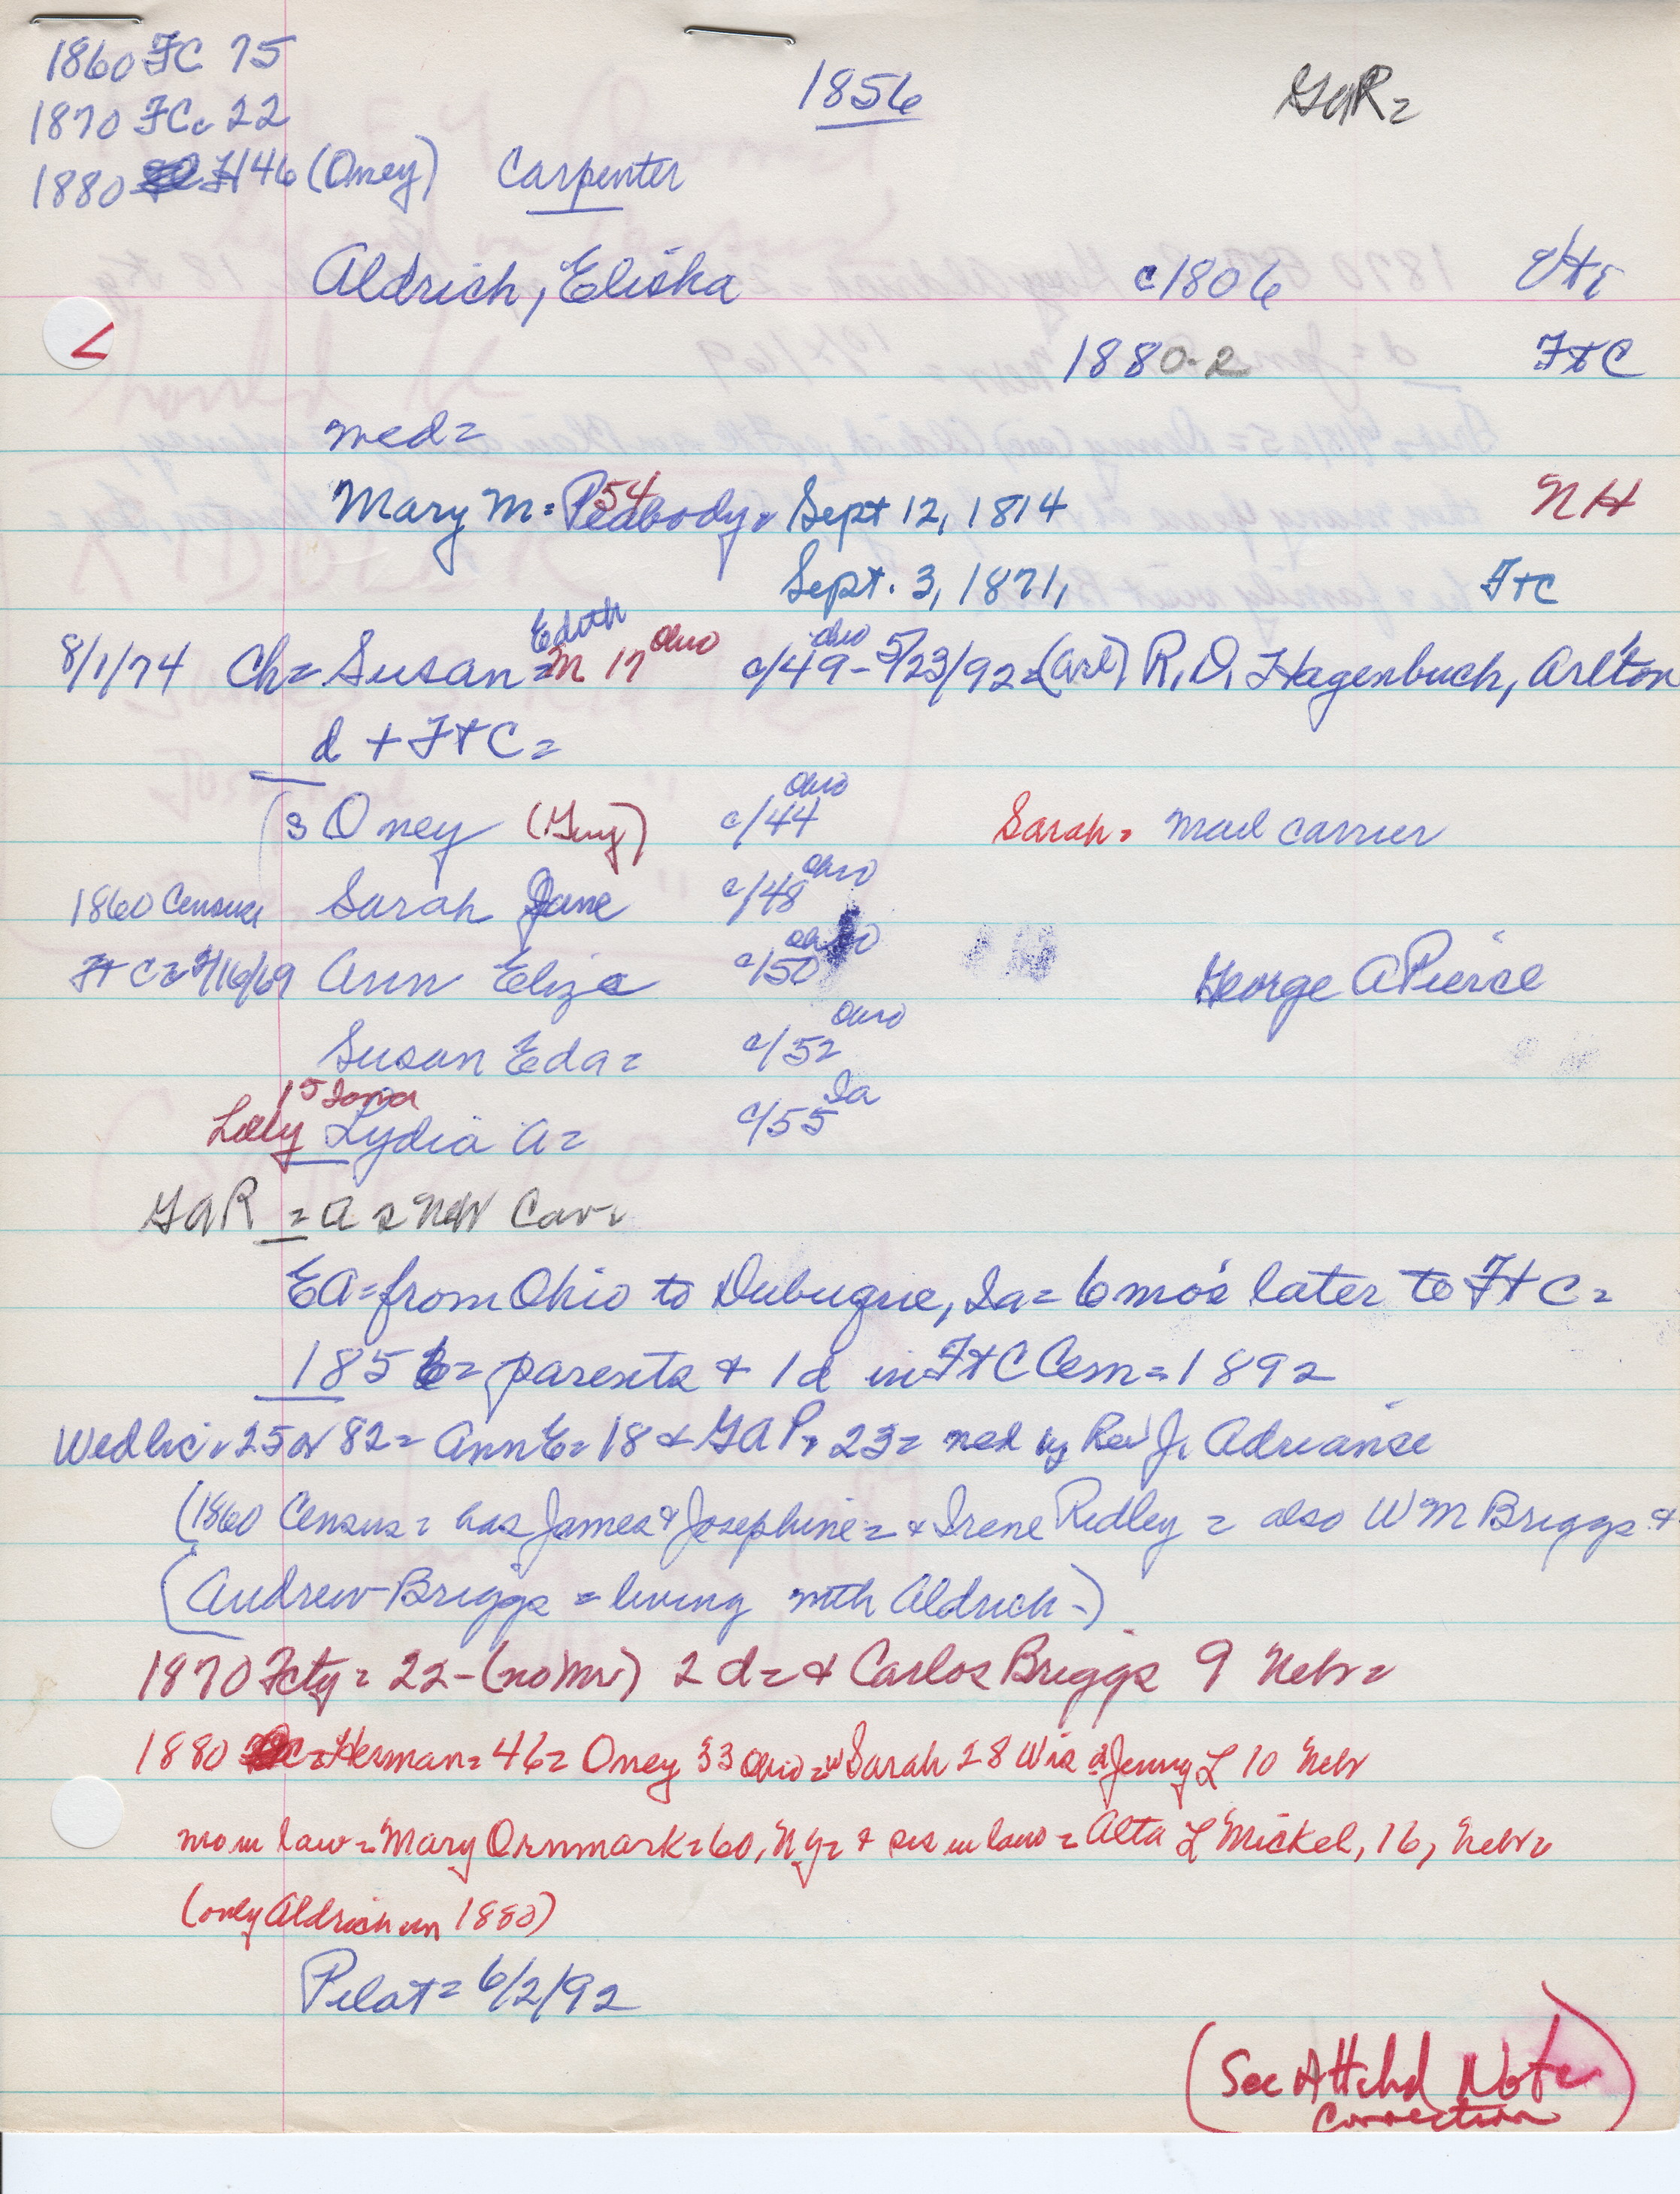 1860 FC 75
1856
GAR=
1870 FC. 22
1880 H 46 (Oney) Carpenter
Aldrich, Elisha c1806 Vt.
1880-2 FtC
med=
Mary M= Peabody, 54 Sept 12, 1814 NH
Sept. 3, 1871, FtC
Edith Ohio Ohio
8/1/74 Ch= Susan = M 17 c/49-5/23/92=(Arl) R. D. Hagenbuch, Arlton
d + FtC=
Ohio
(s Oney (Guy) c/44 Sarah= mail carrier
Ohio
1860 Census Sarah Jane c/48
Ohio
FtC= /16/69 Ann Eliza c/50 George A Pierce
Ohio
Susan Eda= c/52
15 Iowa Ia
Lilly Lydia A= c/55
GAR = a = New Cov.
EA=from Ohio to Dubuque, Ia= 6 mo's later to FtC=
1856= parents + 1 d in FtC Cem=1892
Wed lic. 25 or 82= Ann E=18 & GAP, 23= med by Rev J. Adrianse
(1860 Census= has James & Josephine= & Irene Ridley = also WM Briggs &
(Andrew Briggs = living with Aldrich-)
1870 Fcty= 22-(no Mr) 2 d= & Carlos Briggs 9 Nebr=
1880 =Herman= 46= Oney 33 Ohio=w Sarah 28 Wis d Jenny L 10 Nebr
mo in law=Mary Ornmark=60, NY= + sis in law= Alta L Mickel, 16, Nebr=
(only Aldrich in 1880)
Pilot= 6/2/92
(See Attchd Note
Correction)